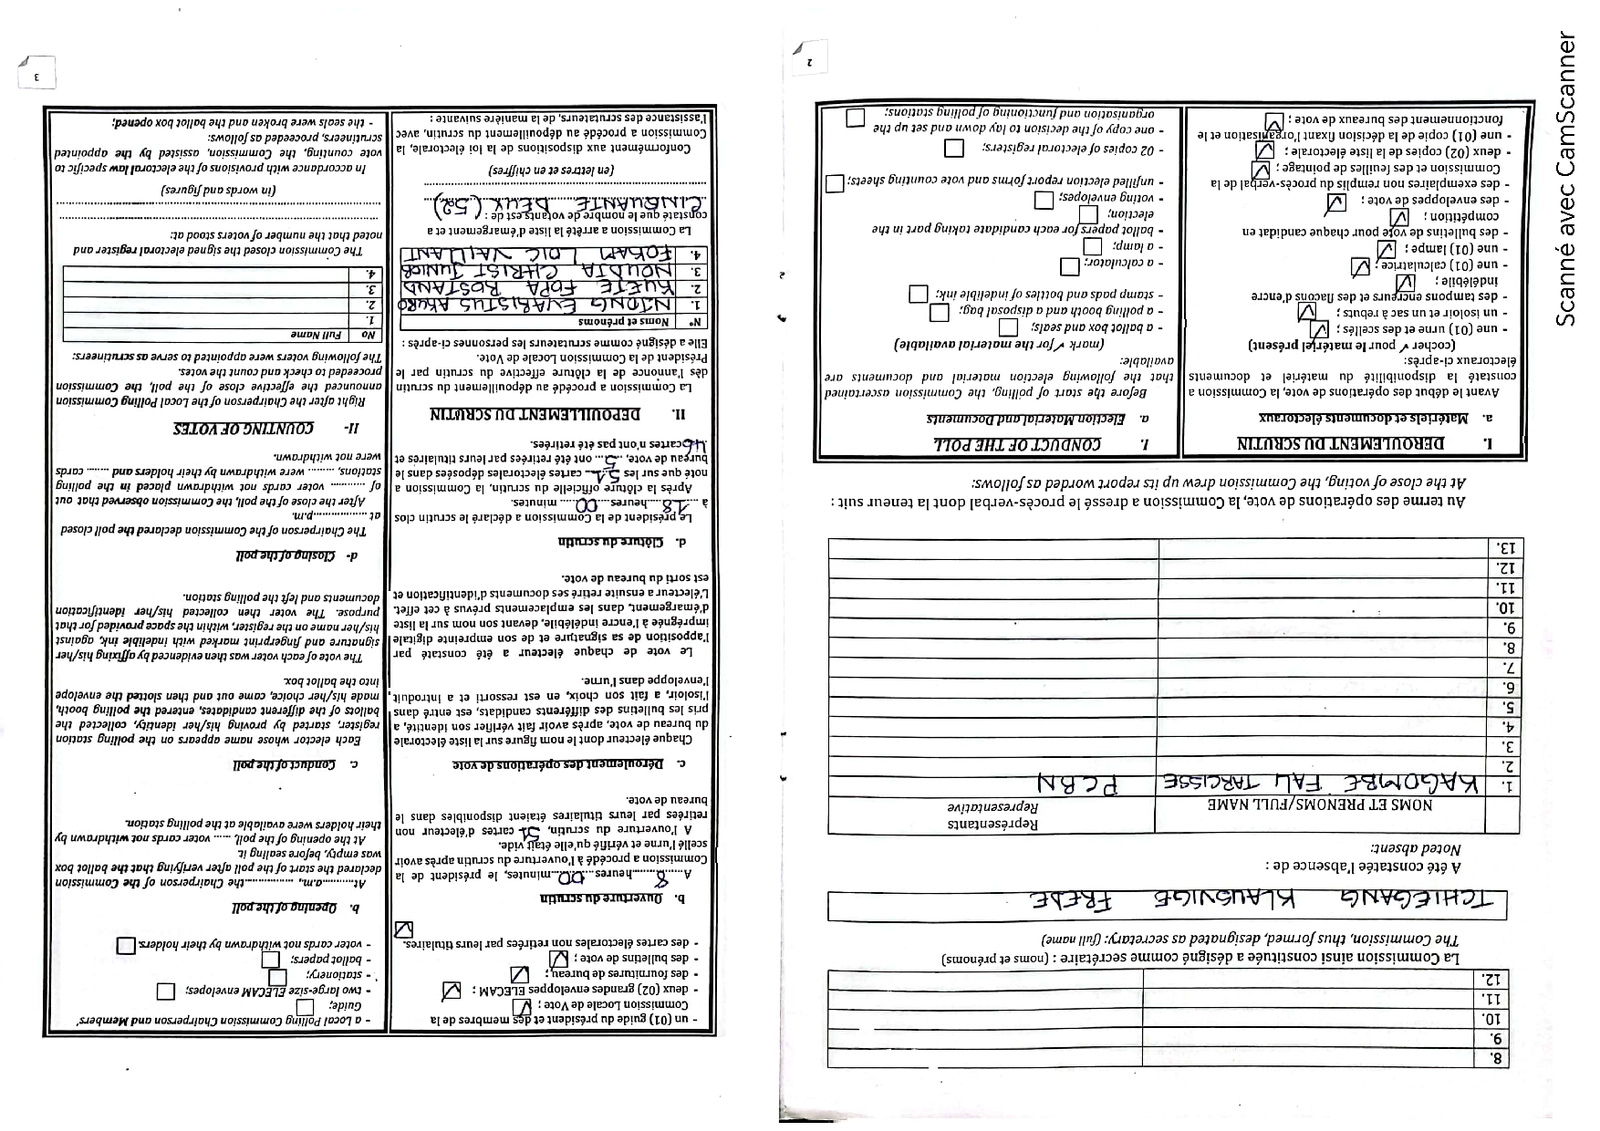 8.
9.
10.
11.
12.
La Commission ainsi constituée a désigné comme secrétaire : (noms et prénoms)
The Commission, thus formed, designated as secretary: (full name)
TCHIEGANG KLAUSVIGE FREDE
A été constatée l'absence de :
Noted absent:
NOMS ET PRENOMS/FULL NAME Représentants
Representative
1. KAGOMBE FALI TARCISSE PCBN
2.
3.
4.
5.
6.
7.
8.
9.
10.
11.
12.
13.
Au terme des opérations de vote, la Commission a dressé le procès-verbal dont la teneur suit :
At the close of voting, the Commission drew up its report worded as follows:
I. DEROULEMENT DU SCRUTIN
a. Matériels et documents électoraux
Avant le début des opérations de vote, la Commission a
constaté la disponibilité du matériel et documents
électoraux ci-après:
(cocher ✓ pour le matériel présent)
- une (01) urne et des scellés ;
- un isoloir et un sac à rebuts ;
- des tampons encreurs et des flacons d'encre
indélébile ;
- une (01) calculatrice ;
- une (01) lampe ;
- des bulletins de vote pour chaque candidat en
compétition ;
- des enveloppes de vote ;
- des exemplaires non remplis du procès-verbal de la
Commission et des feuilles de pointage ;
- deux (02) copies de la liste électorale ;
- une (01) copie de la décision fixant l'organisation et le
fonctionnement des bureaux de vote ;
I. CONDUCT OF THE POLL
a. Election Material and Documents
Before the start of polling, the Commission ascertained
that the following election material and documents are
available:
(mark ✓ for the material available)
- a ballot box and seals;
- a polling booth and a disposal bag;
- stamp pads and bottles of indelible ink;
- a calculator;
- a lamp;
- ballot papers for each candidate taking part in the
election;
- voting envelopes;
- unfilled election report forms and vote counting sheets;
- 02 copies of electoral registers;
- one copy of the decision to lay down and set up the
organisation and functioning of polling stations;
2
- un (01) guide du président et des membres de la
Commission Locale de Vote ;
- deux (02) grandes enveloppes ELECAM ;
- des fournitures de bureau ;
- des bulletins de vote ;
- des cartes électorales non retirées par leurs titulaires.
b. Ouverture du scrutin
A 8 heures 00 minutes, le président de la
Commission a procédé à l'ouverture du scrutin après avoir
scellé l'urne et vérifié qu'elle était vide.
A l'ouverture du scrutin, 51 cartes d'électeur non
retirées par leurs titulaires étaient disponibles dans le
bureau de vote.
c. Déroulement des opérations de vote
Chaque électeur dont le nom figure sur la liste électorale
du bureau de vote, après avoir fait vérifier son identité, a
pris les bulletins des différents candidats, est entré dans
l'isoloir, a fait son choix, en est ressorti et a introduit
l'enveloppe dans l'urne.
Le vote de chaque électeur a été constaté par
l'apposition de sa signature et de son empreinte digitale
imprégnée à l'encre indélébile, devant son nom sur la liste
d'émargement, dans les emplacements prévus à cet effet.
L'électeur a ensuite retiré ses documents d'identification et
est sorti du bureau de vote.
d. Clôture du scrutin
Le président de la Commission a déclaré le scrutin clos
à 18 heures 00 minutes.
Après la clôture officielle du scrutin, la Commission a
noté que sur les 51 cartes électorales déposées dans le
bureau de vote, 5 ont été retirées par leurs titulaires et
46 cartes n'ont pas été retirées.
II. DEPOUILLEMENT DU SCRUTIN
La Commission a procédé au dépouillement du scrutin
dès l'annonce de la clôture effective du scrutin par le
Président de la Commission Locale de Vote.
Elle a désigné comme scrutateurs les personnes ci-après :
N° Noms et prénoms
1. NTONG EVARISTUS AKURO
2. KUETE FOPA ROSTAND
3. NOUDJA CHRIST JUNIOR
4. FOKAM LOIC VAILLANT
La Commission a arrêté la liste d'émargement et a
constaté que le nombre de votants est de :
CINQUANTE DEUX (52)
(en lettres et en chiffres)
Conformément aux dispositions de la loi électorale, la
Commission a procédé au dépouillement du scrutin, avec
l'assistance des scrutateurs, de la manière suivante :
- a Local Polling Commission Chairperson and Members'
Guide;
- two large-size ELECAM envelopes;
- stationery;
- ballot papers;
- voter cards not withdrawn by their holders.
b. Opening of the poll
At..........a.m, ..............the Chairperson of the Commission
declared the start of the poll after verifying that the ballot box
was empty, before sealing it.
At the opening of the poll, ...... voter cards not withdrawn by
their holders were available at the polling station.
c. Conduct of the poll
Each elector whose name appears on the polling station
register, started by proving his/her identity, collected the
ballots of the different candidates, entered the polling booth,
made his/her choice, came out and then slotted the envelope
into the ballot box.
The vote of each voter was then evidenced by affixing his/her
signature and fingerprint marked with indelible ink, against
his/her name on the register, within the space provided for that
purpose. The voter then collected his/her identification
documents and left the polling station.
d- Closing of the poll
The Chairperson of the Commission declared the poll closed
at ..................p.m.
After the close of the poll, the Commission observed that out
of .......... voter cards not withdrawn placed in the polling
stations, ........ were withdrawn by their holders and ....... cards
were not withdrawn.
II- COUNTING OF VOTES
Right after the Chairperson of the Local Polling Commission
announced the effective close of the poll, the Commission
proceeded to check and count the votes.
The following voters were appointed to serve as scrutineers:
No Full Name
1.
2.
3.
4.
The Commission closed the signed electoral register and
noted that the number of voters stood at:
(in words and figures)
In accordance with provisions of the electoral law specific to
vote counting, the Commission, assisted by the appointed
scrutineers, proceeded as follows:
- the seals were broken and the ballot box opened;
3
Scanné avec CamScanner